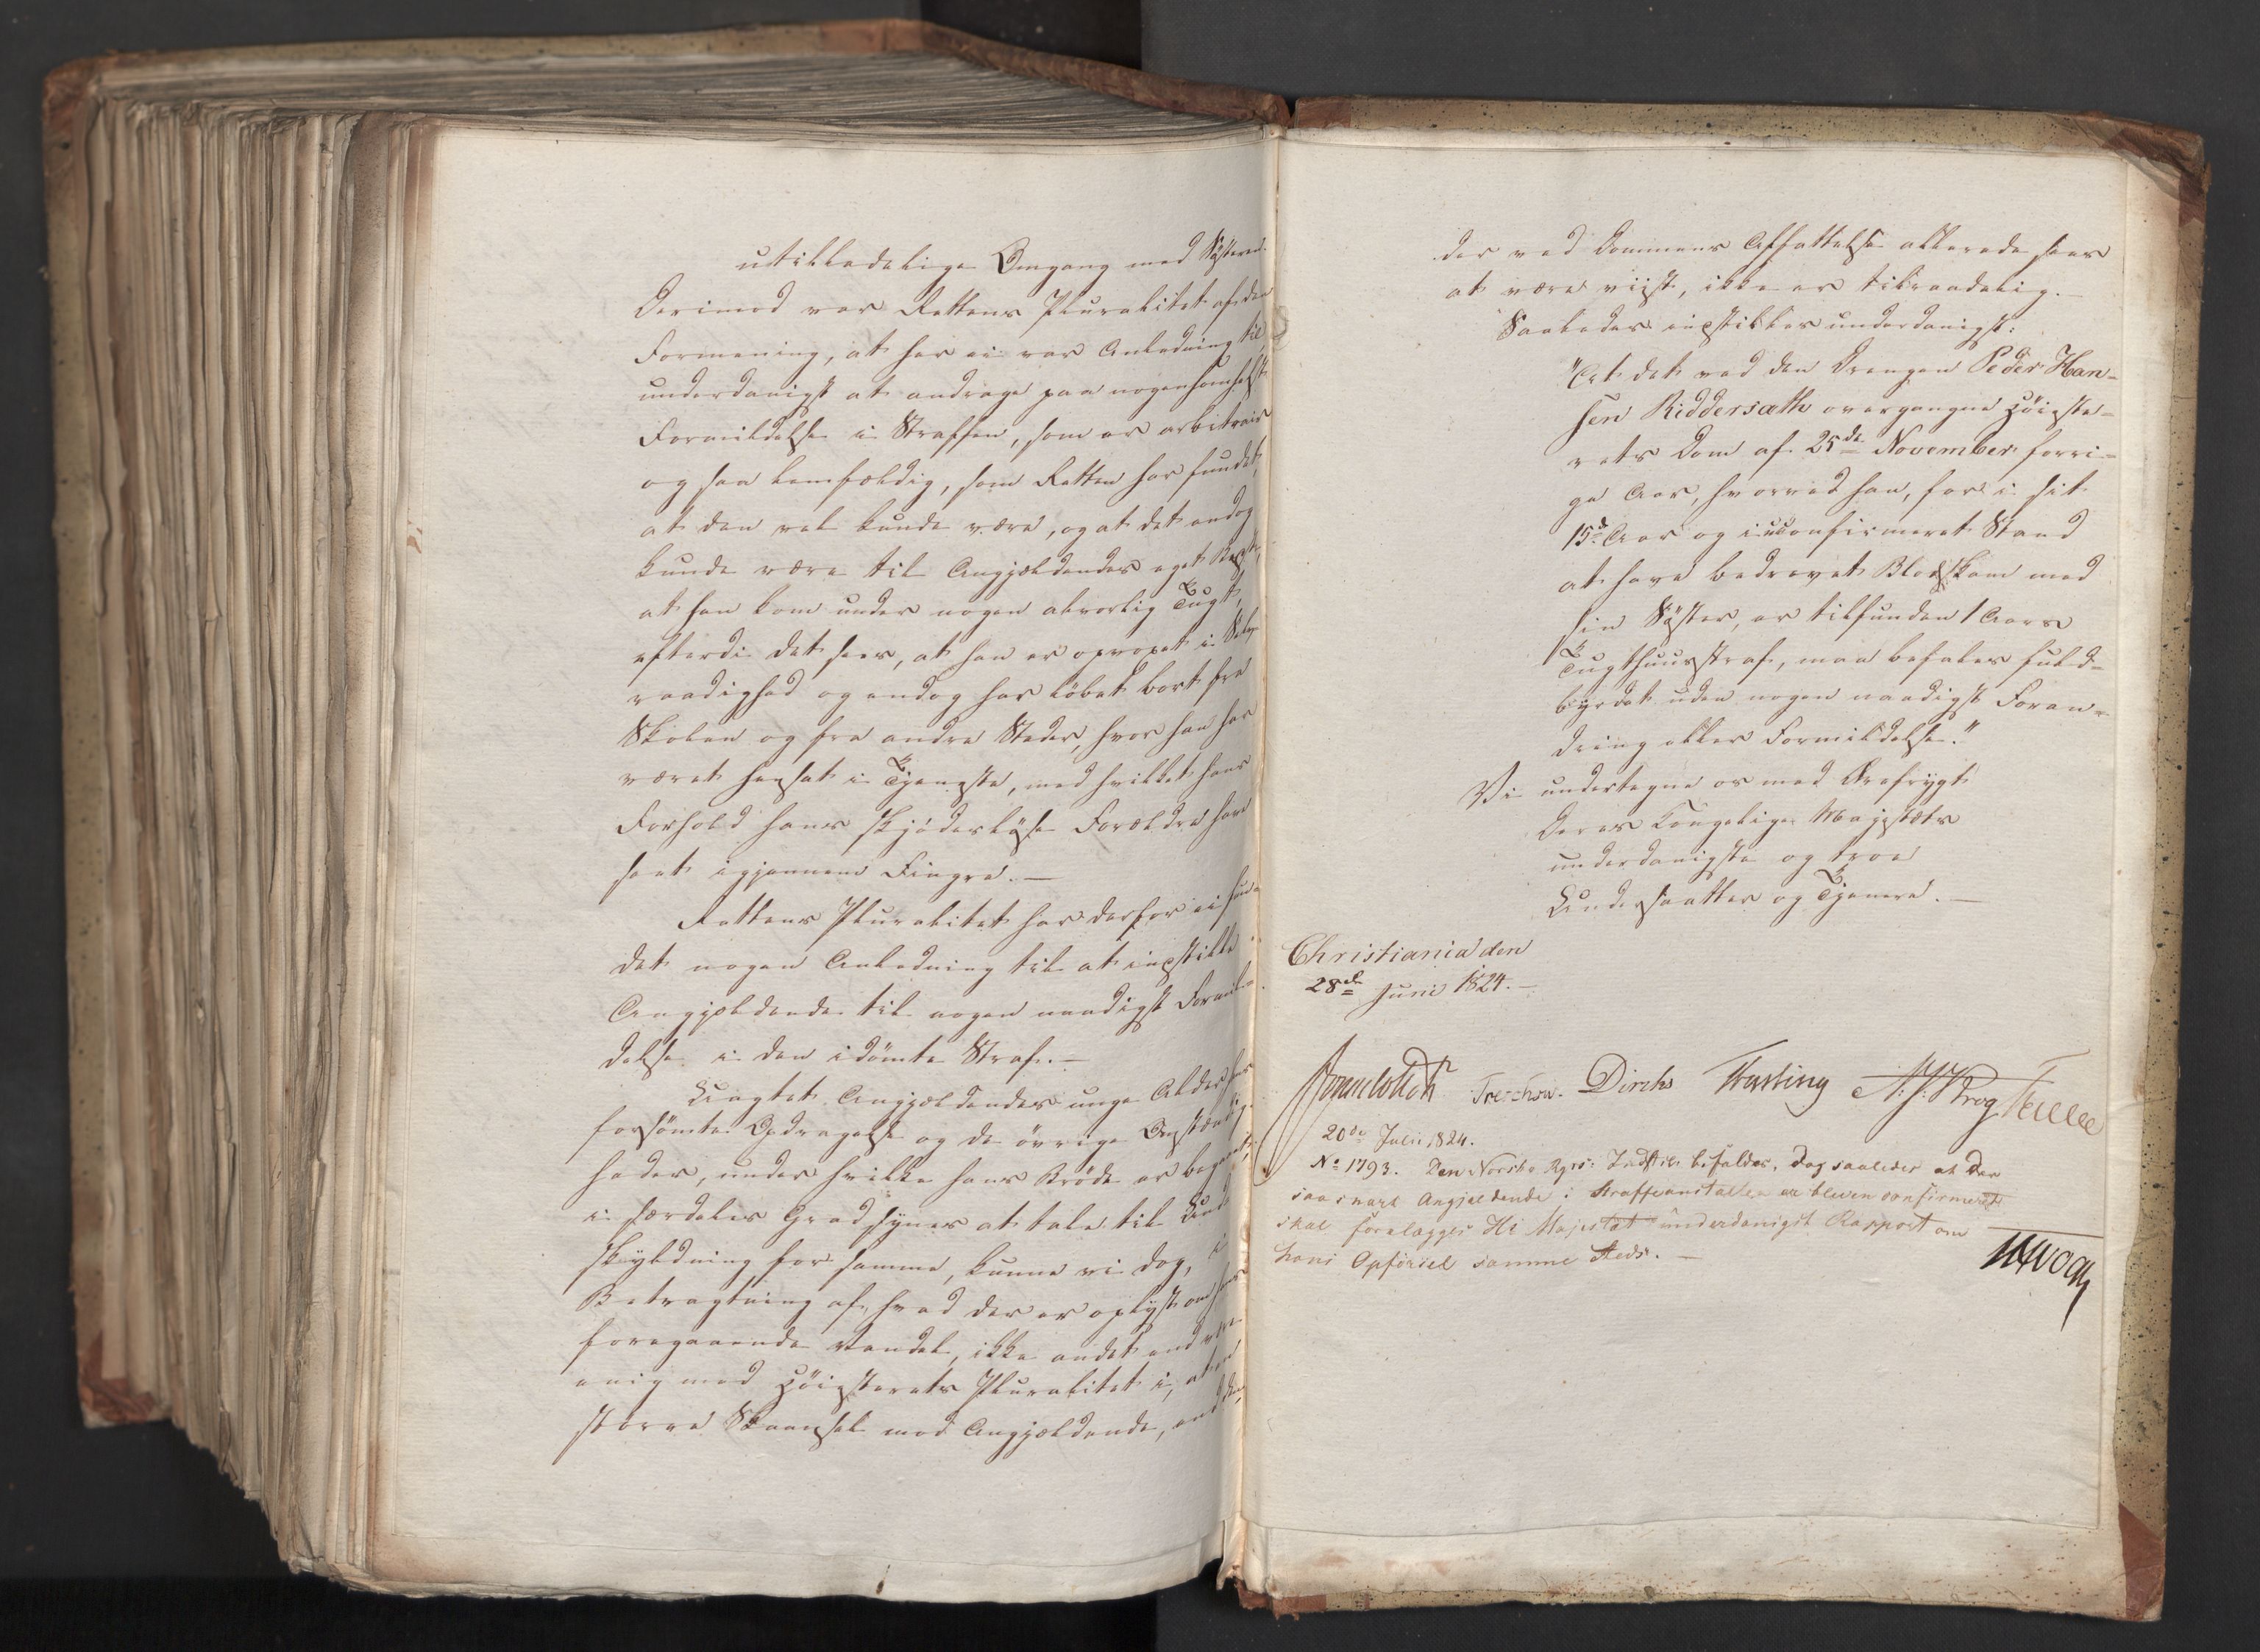 utilladelige Omgang med Systeren.
Derimod var Rettens Pluralitet af den
Formening, at her ei var Anledning til
underdanigst at andrage paa nogensomhelst
Formildelse i Straffen, som er arbitrair
og saa lemfældig, som Retten har fundet,
at den vel kunde være, og at det endog
kunde være til Angjældendes eget Bedste,
at han kom under nogen alvorlig Tugt,
efterdi det sees, at han er opvoxet i Selv-
raadighed og endog har løbet bort fra
Skolen og fra andre Steder, hvor han har
været hensat i Tjeneste, med hvilket hans
Forhold hans skjødesløse Forældre have
seet igjennem Fingre. —
Rettens Pluralitet har derfor ei fun-
det nogen Anledning til at indstille
Angjældende til nogen naadigst Formil-
delse i den idømte Straf. —
Uagtet Angjældendes unge Alder, hans
forsømte Opdragelse og de øvrige Omstændig-
heder, under hvilke hans Brøde er begaaet,
i særdeles Grad synes at tale til Und-
skyldning for samme, kunne vi dog, i
Betragtning af, hvad der er oplyst om hans
foregaaende Vandel, ikke andet end være
enig med Høiesterets Pluralitet i, at en
større Skaansel mod Angjældende, end den,
der ved Dommens Affattelse allerede sees
at være viist, ikke er tilraadelig. —
Saaledes indstilles underdanigst:
"At det ved den Drengen Peder Han-
sen Riddersæth overgangne Høieste-
rets Dom af 25de November forri-
ge Aar, hvorved han, for i sit
15de Aar og i uconfirmeret Stand
at have bedrevet Blodskam med
sin Syster, er tilfunden 1 Aars
Tugthuusstraf, maa befales fuld-
byrdet uden nogen naadigst Foran-
dring eller Formildelse."
Vi undertegne os med Ærefrygt
Deres Kongelige Majestæts
underdanigste og troe
Undersaatter og Tjenere. —
Christiania den
28de Juni 1824. —
Sommerhielm Treschow. Diriks Fasting N: J: Krog Collett
20de Julii 1824.
No 1793. Den Norske Rgrs: Indstill: bifaldes, dog saaledes at der
saasnart Angjeldende i Straffeanstalten er bleven confirmeret
skal forelægges Hs Majestæt underdanigst Rapport om
hans Opførsel samme Steds. —